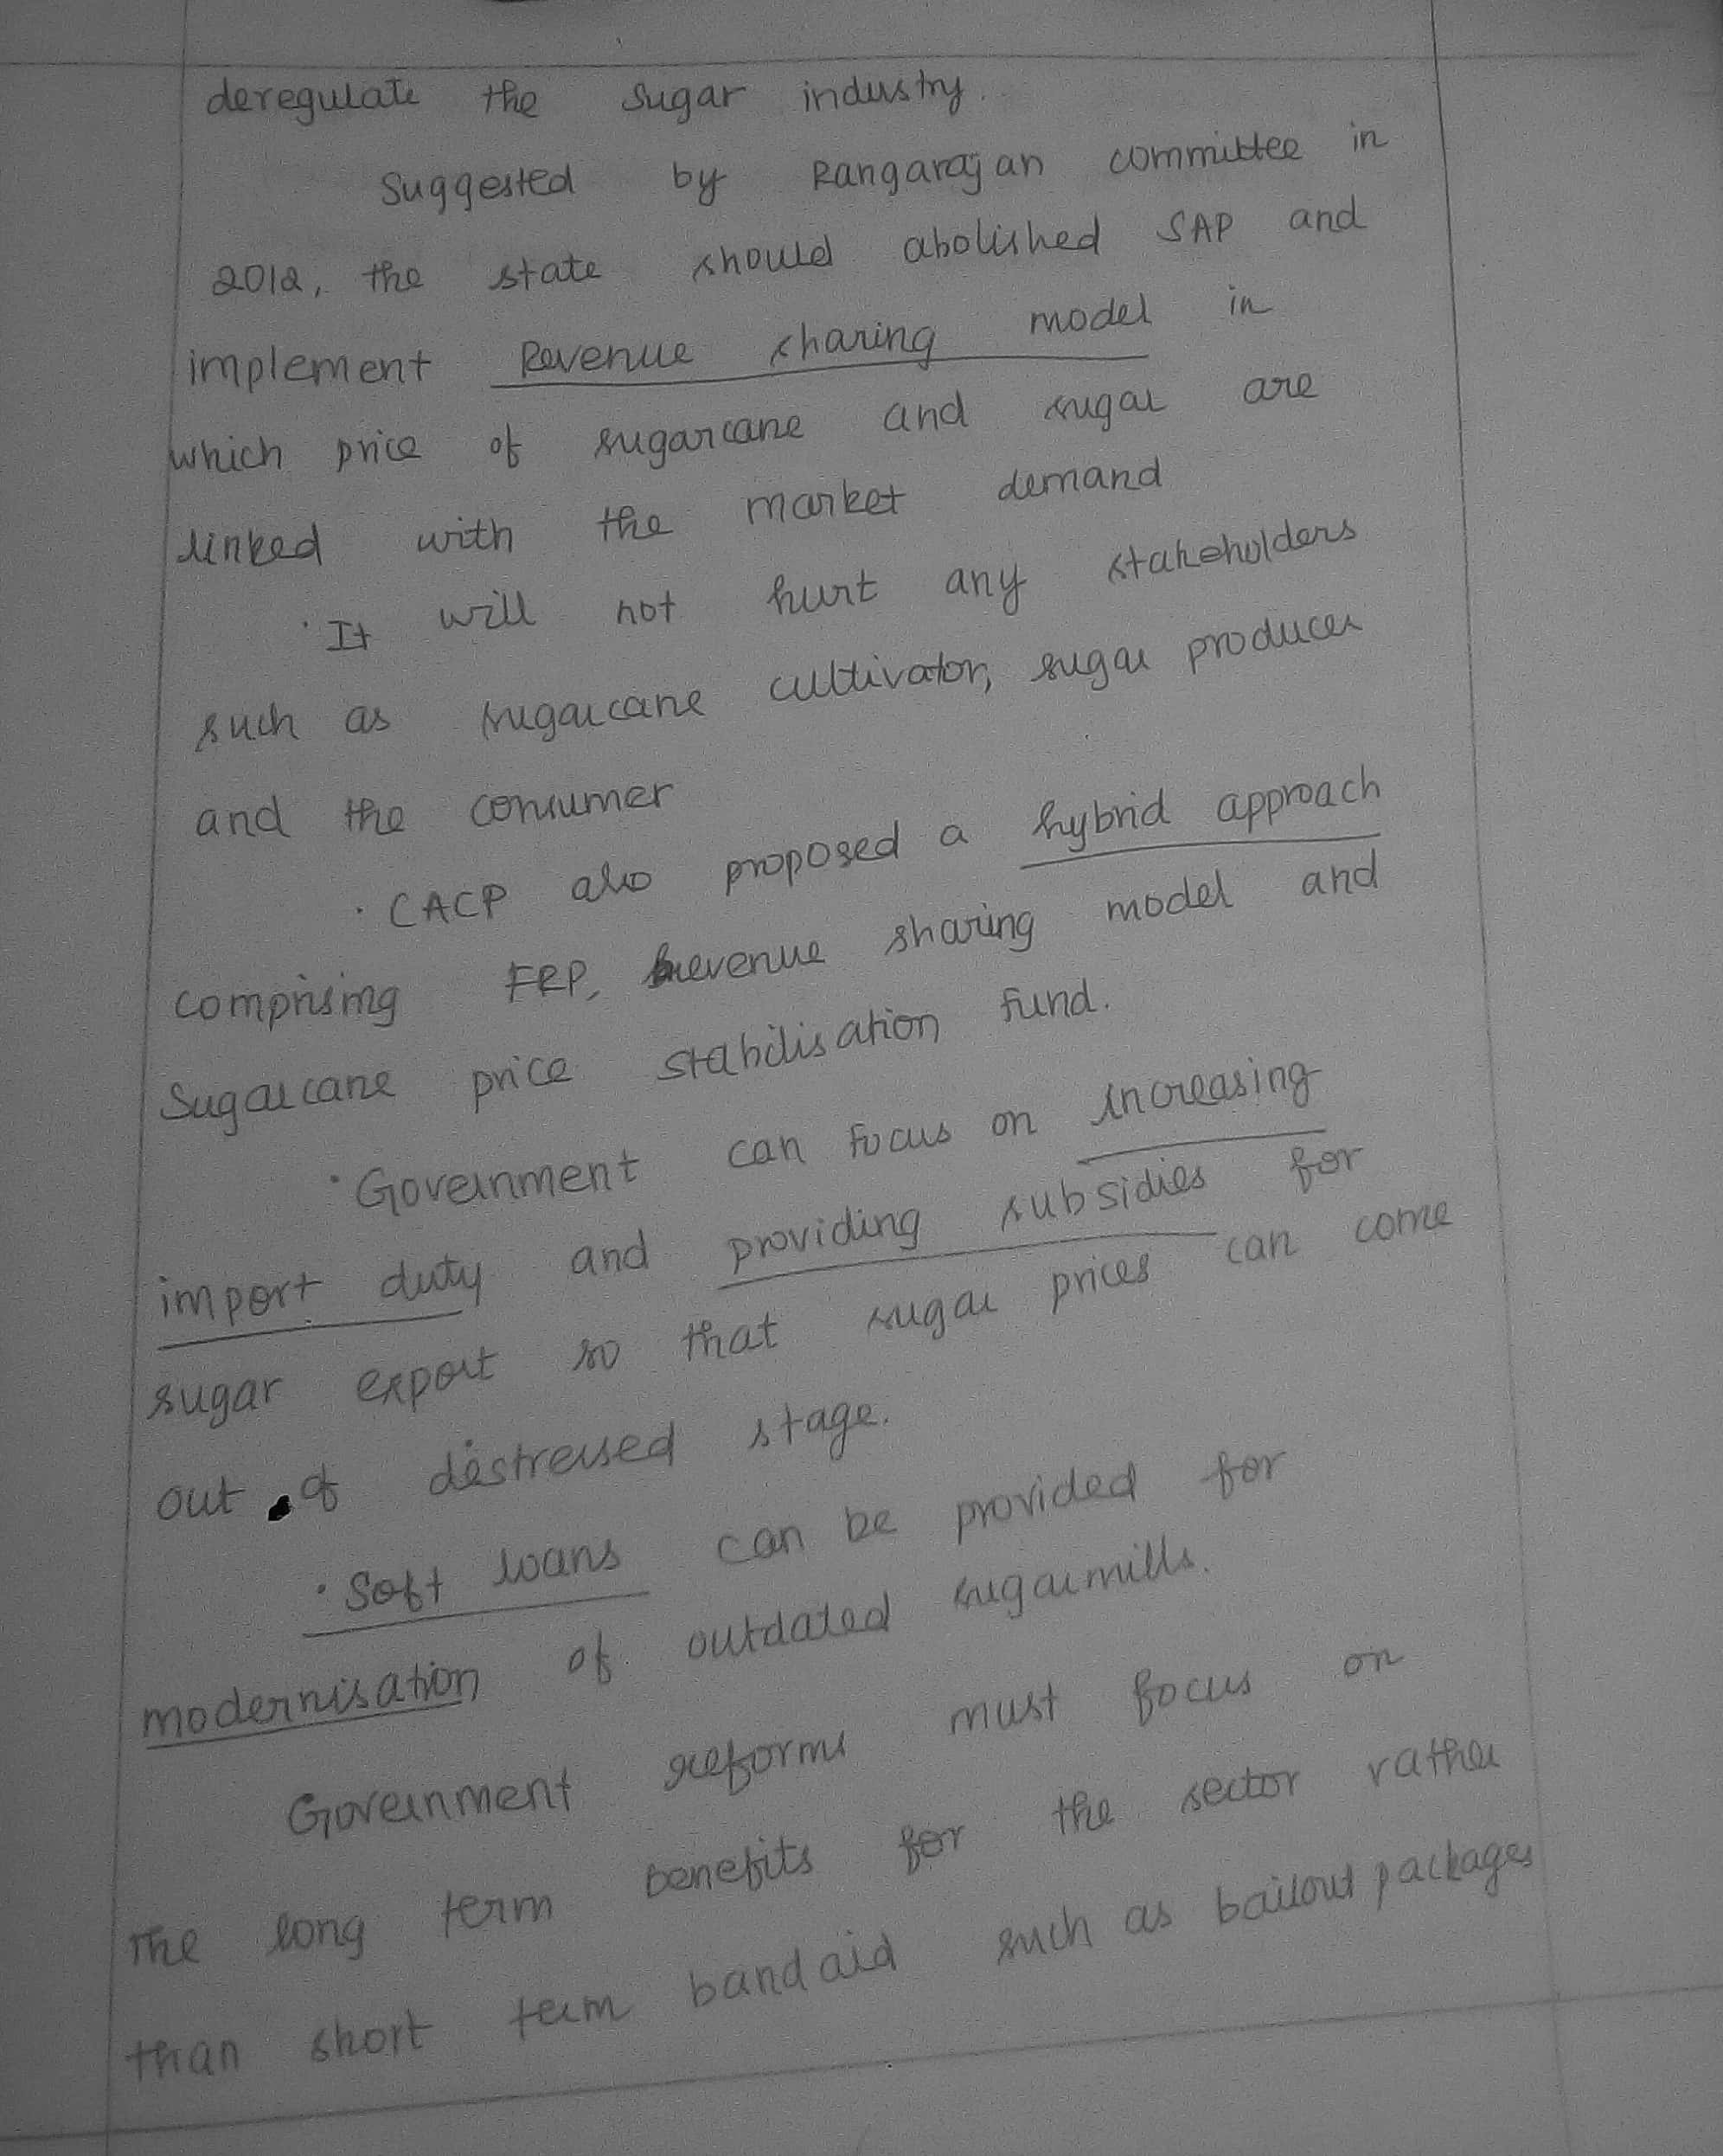 deregulate the sugar industry.
Suggested by Rangarajan committee in
2012, the state should abolished SAP and
implement Revenue sharing model in
which price of sugarcane and sugar are
linked with the market demand
· It will not hurt any stakeholders
such as sugarcane cultivator, sugar producer
and the consumer
· CACP also proposed a hybrid approach
comprising FRP, revenue sharing model and
Sugarcane price stabilisation fund.
· Government can focus on increasing
import duty and providing subsidies for
sugar export so that sugar prices can come
out of distressed stage.
· Soft loans can be provided for
modernisation of outdated sugarmills.
Government reforms must focus on
The long term benefits for the sector rather
than short term band aid such as bailout packages